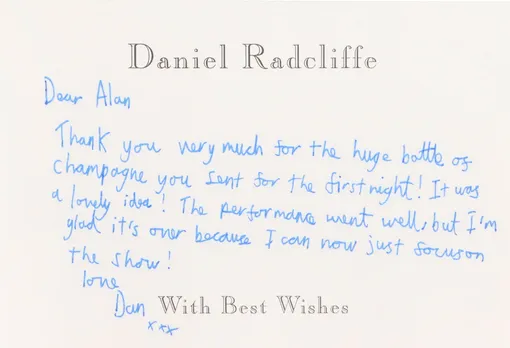 Daniel Radcliffe
Dear Alan
Thank you very much for the huge bottle of
champagne you sent for the first night! It was
a lovely idea! The performance went well, but I'm
glad it's over because I can now just focus on
the show!
love
Dan
With Best Wishes
xxx